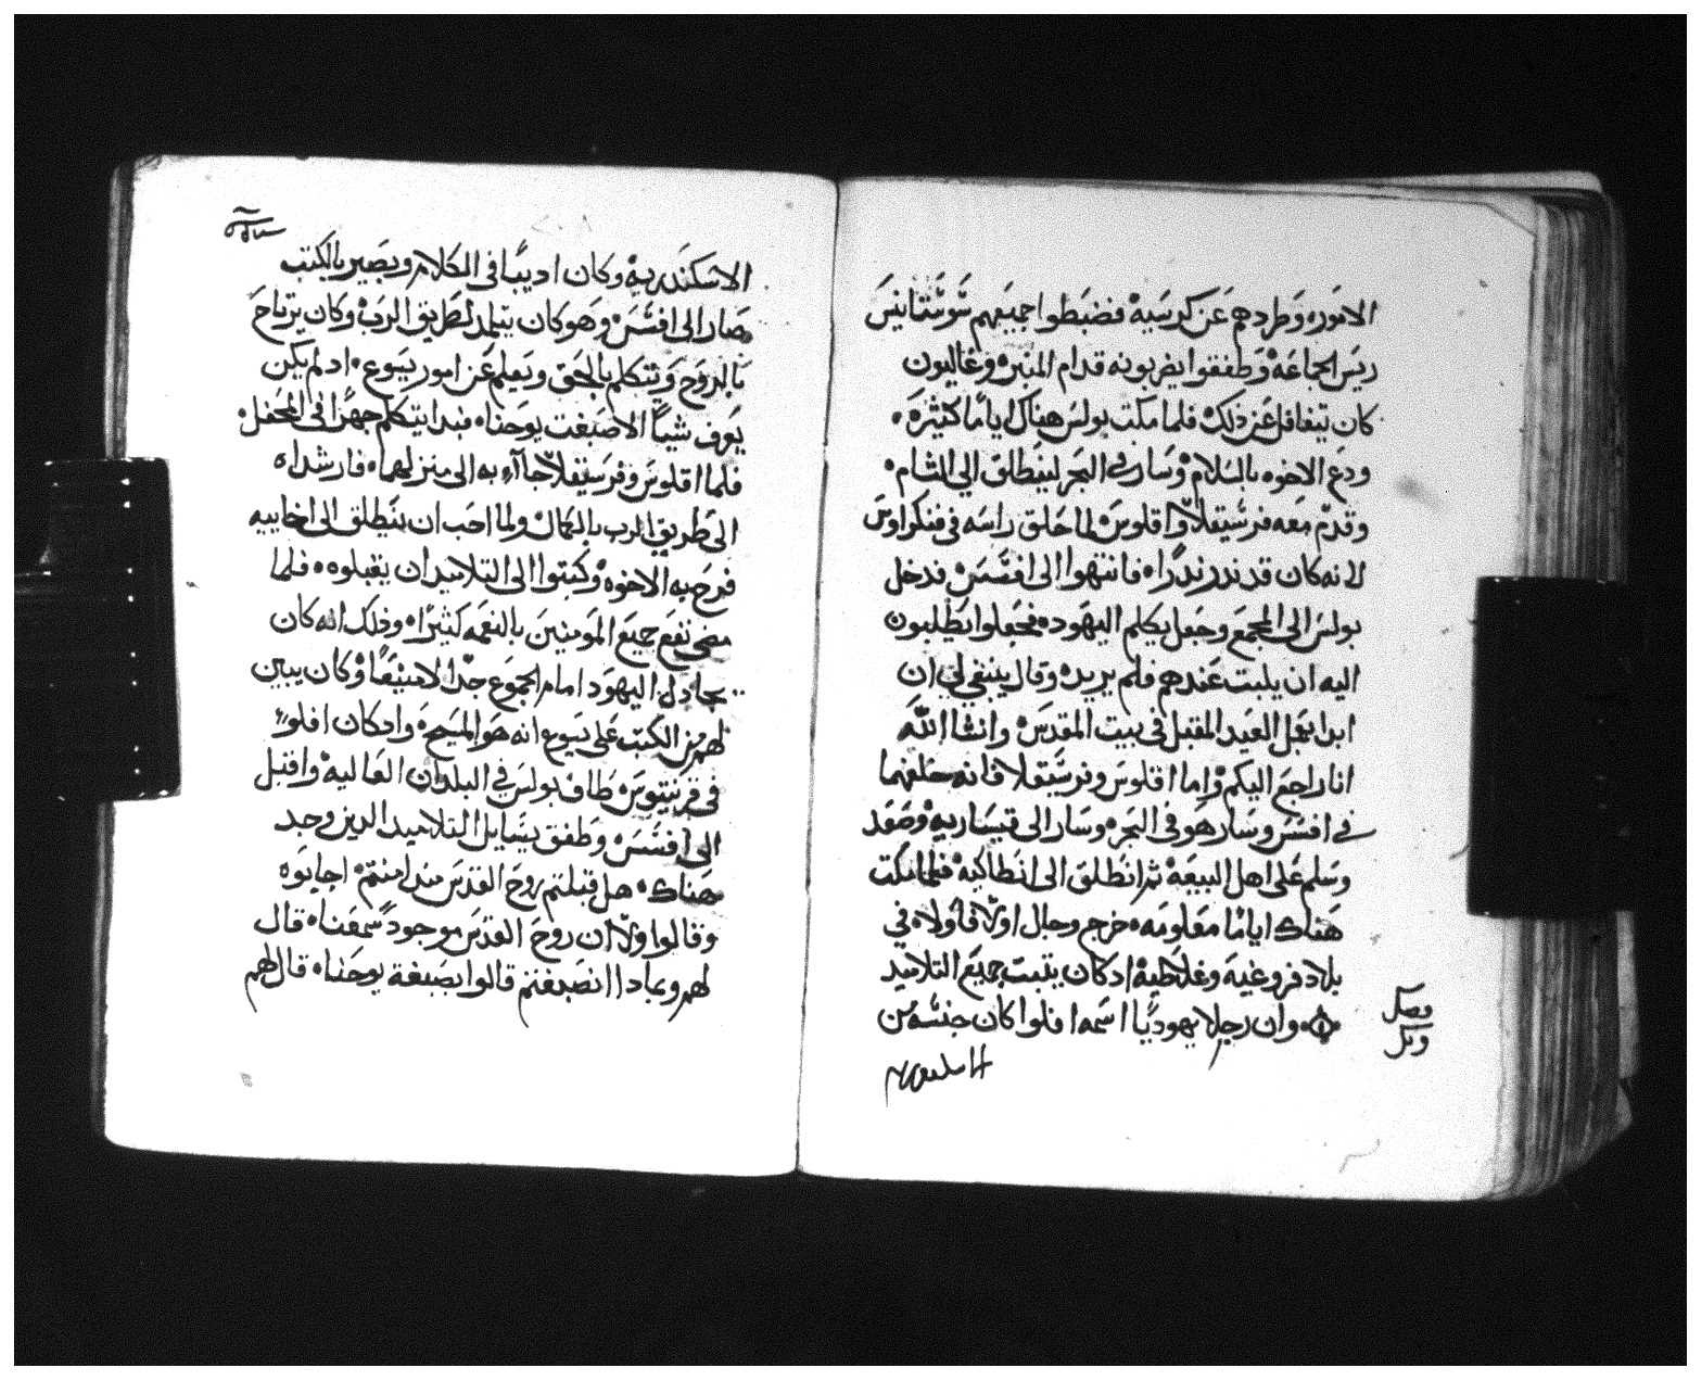 الامور، وطردهم عن كرسيه فضبطوا جميعهم سوستانيس
ريس الجماعه وطفقوا يضربونه قدام المنبر، وغاليون
كان تيغافل عن ذلك فلما مكت بولس هناك اياما كثيره
ودع الاخوه بالسلام وسار في البحر لينطلق الي الشام
وقدم معه فرسيقلا واقلوس لما حلق راسه في فنكراوس
لانه كان قد ندر ندرا، فانتهوا الى افسس فدخل
بولس الى المجمع وجعل يكلم اليهود، فجعلوا يطلبون
اليه ان يلبت عندهم فلم يريد، وقال ينبغي لي ان
ابدا بعمل العيد المقبل في بيت المقدس وانشا الله
انا راجع اليكم، واما اقلوس وفرسيقلا فانه خلفهما
في افسس وسار هو في البحر، وسار الى قيساريه وصعد
وسلم على اهل البيعه ثم انطلق الى انطاكيه فلما مكت
هناك اياما معلومه خرج وجال اولا فاولا، في
بلاد فروغيه وغلاطيه ادكان يتبت جميع التلاميد
وان رجلا يهوديا اسمه افلوا كان جنسه من
فصل
الاسكندريه وكان اديبا في الكلام وبصير بالكتب
صار الى افسس وهو كان يتلمد لطريق الرب وكان يرتاح
بالروح ويتكلم بالحق ويعلم عن امور يسوع ادلم يكن
يعرف شياً الا صبغت يوحنا، فبدا يتكلم جهرا في المحفل
فلما اقلوس وفرسيقلا جاآ به الى منزلهما، فارشداه
الى طريق الرب بالكمال ولما احب ان ينطلق الى اخاييه
فرح به الاخوه وكتبوا الى التلاميد ان يقبلوه، فلما
مضى نفع جميع المومنين بالنعمه كثيرا، وذلك انه كان
يجادل اليهود امام الجموع جدالا منيعا، وكان يبين
لهم من الكتب على يسوع انه هو المسيح وادكان افلوا
في قرنتيوس طاف بولس في البلدان العاليه واقبل
الى افسس وطفق يسايل التلاميد الدين وجد
هناك هل قبلتم روح القدس مند امنتم اجابوه
وقالوا ولا ان روح القدس موجود سمعنا، قال
لهم وبمادا انصبغتم قالوا بصبغة يوحنا، قال لهم